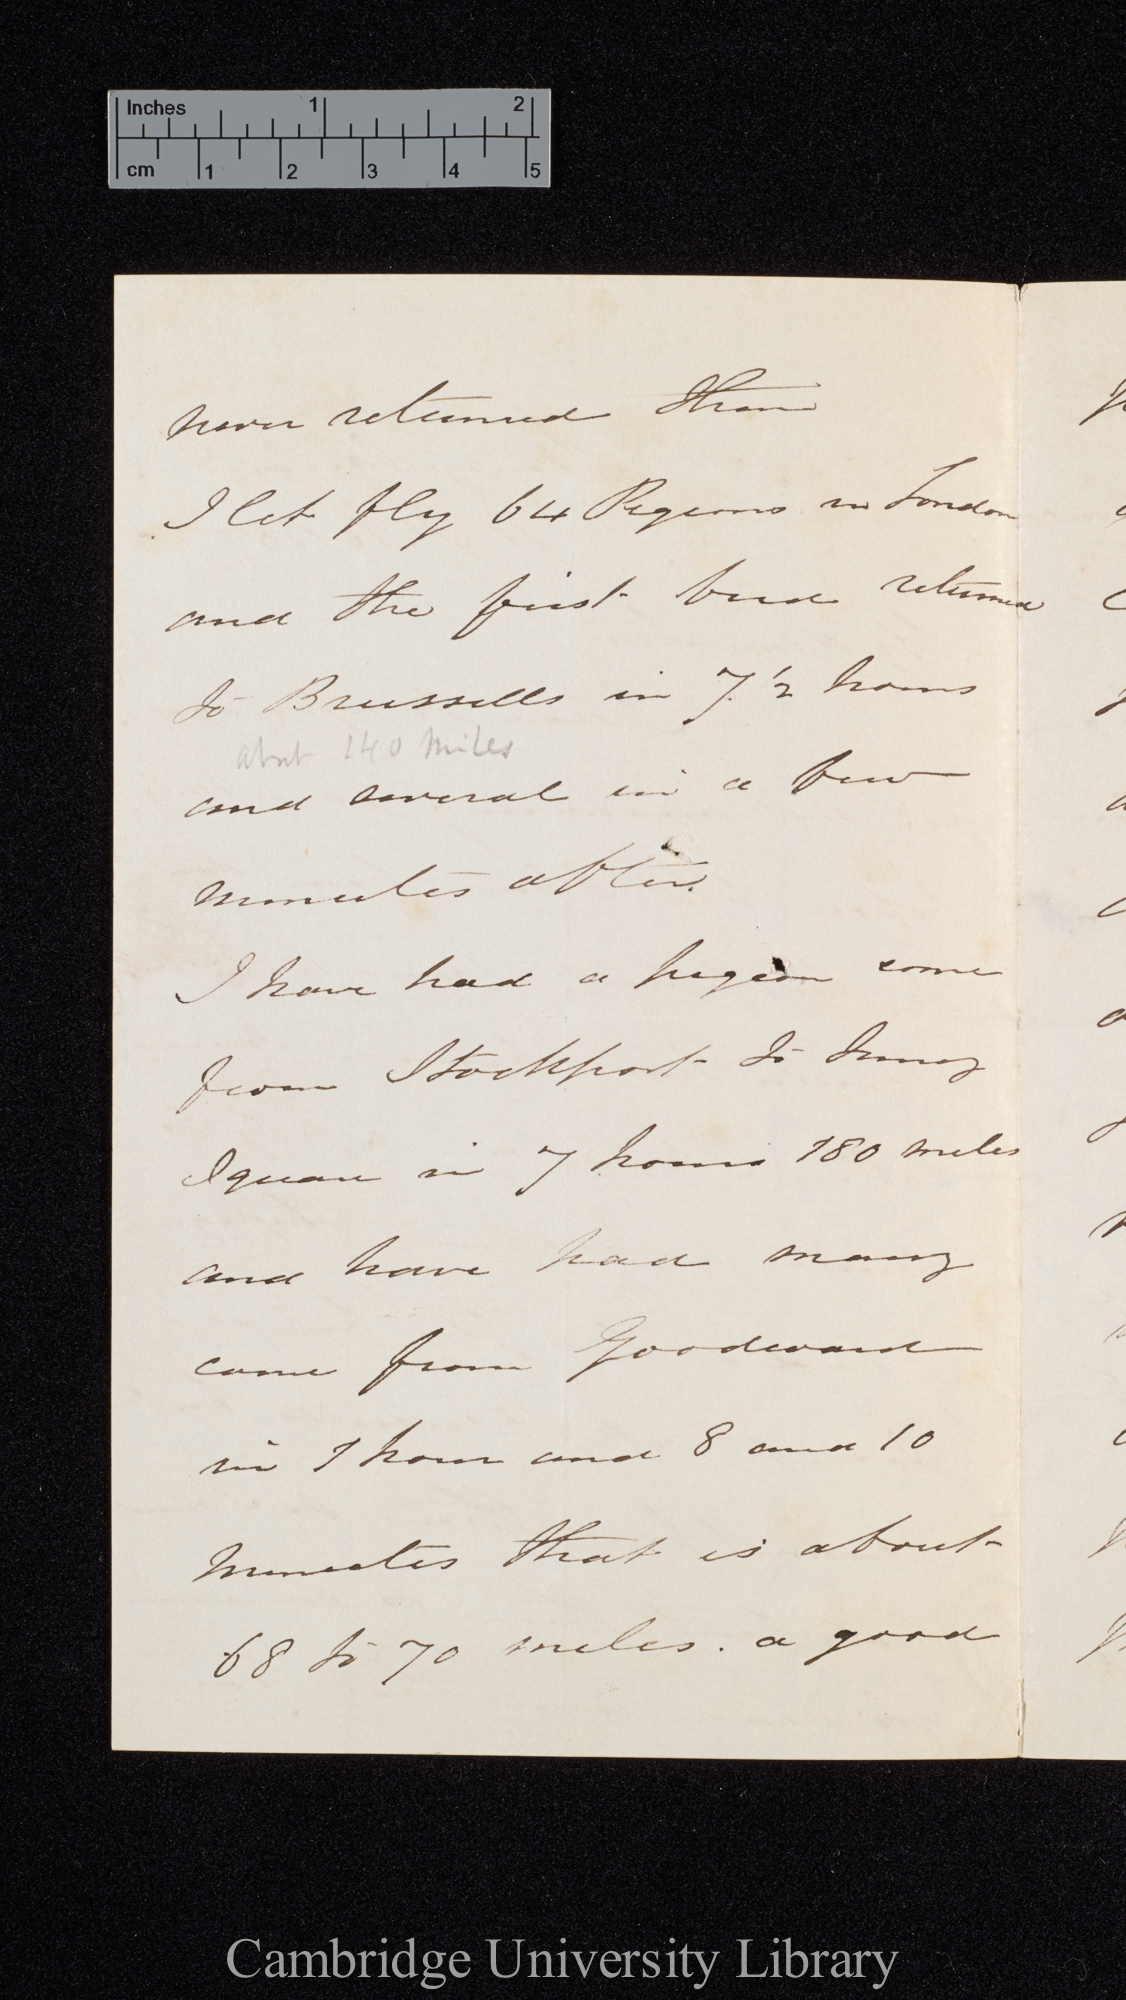 Inches 1 2
cm 1 2 3 4 5
never returned them
I let fly 64 Pigeons in London
and the first bird returned
to Brussells in 7 1/2 hours
about 240 miles
and several in a few
minutes after.
I have had a pigeon come
from Stockport to
Square in 7 hours 180 miles
and have had many
come from Goodward
in 1 hour and 8 and 10
minutes that is about
68 to 70 miles. a good
Cambridge University Library